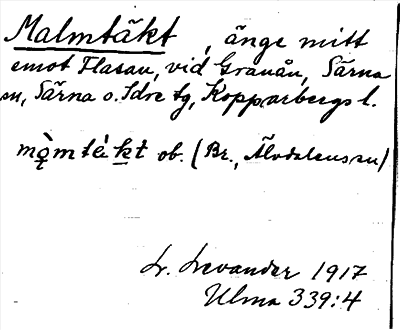 Malmtäkt, änge mitt
emot Flasau, vid Granån, Särna
sn, Särna o. Idre tg, Kopparbergs l.
mǫ̀mtèkt ob. (Br., Älvdalens sn)
L. Levander 1917
Ulma 339:4